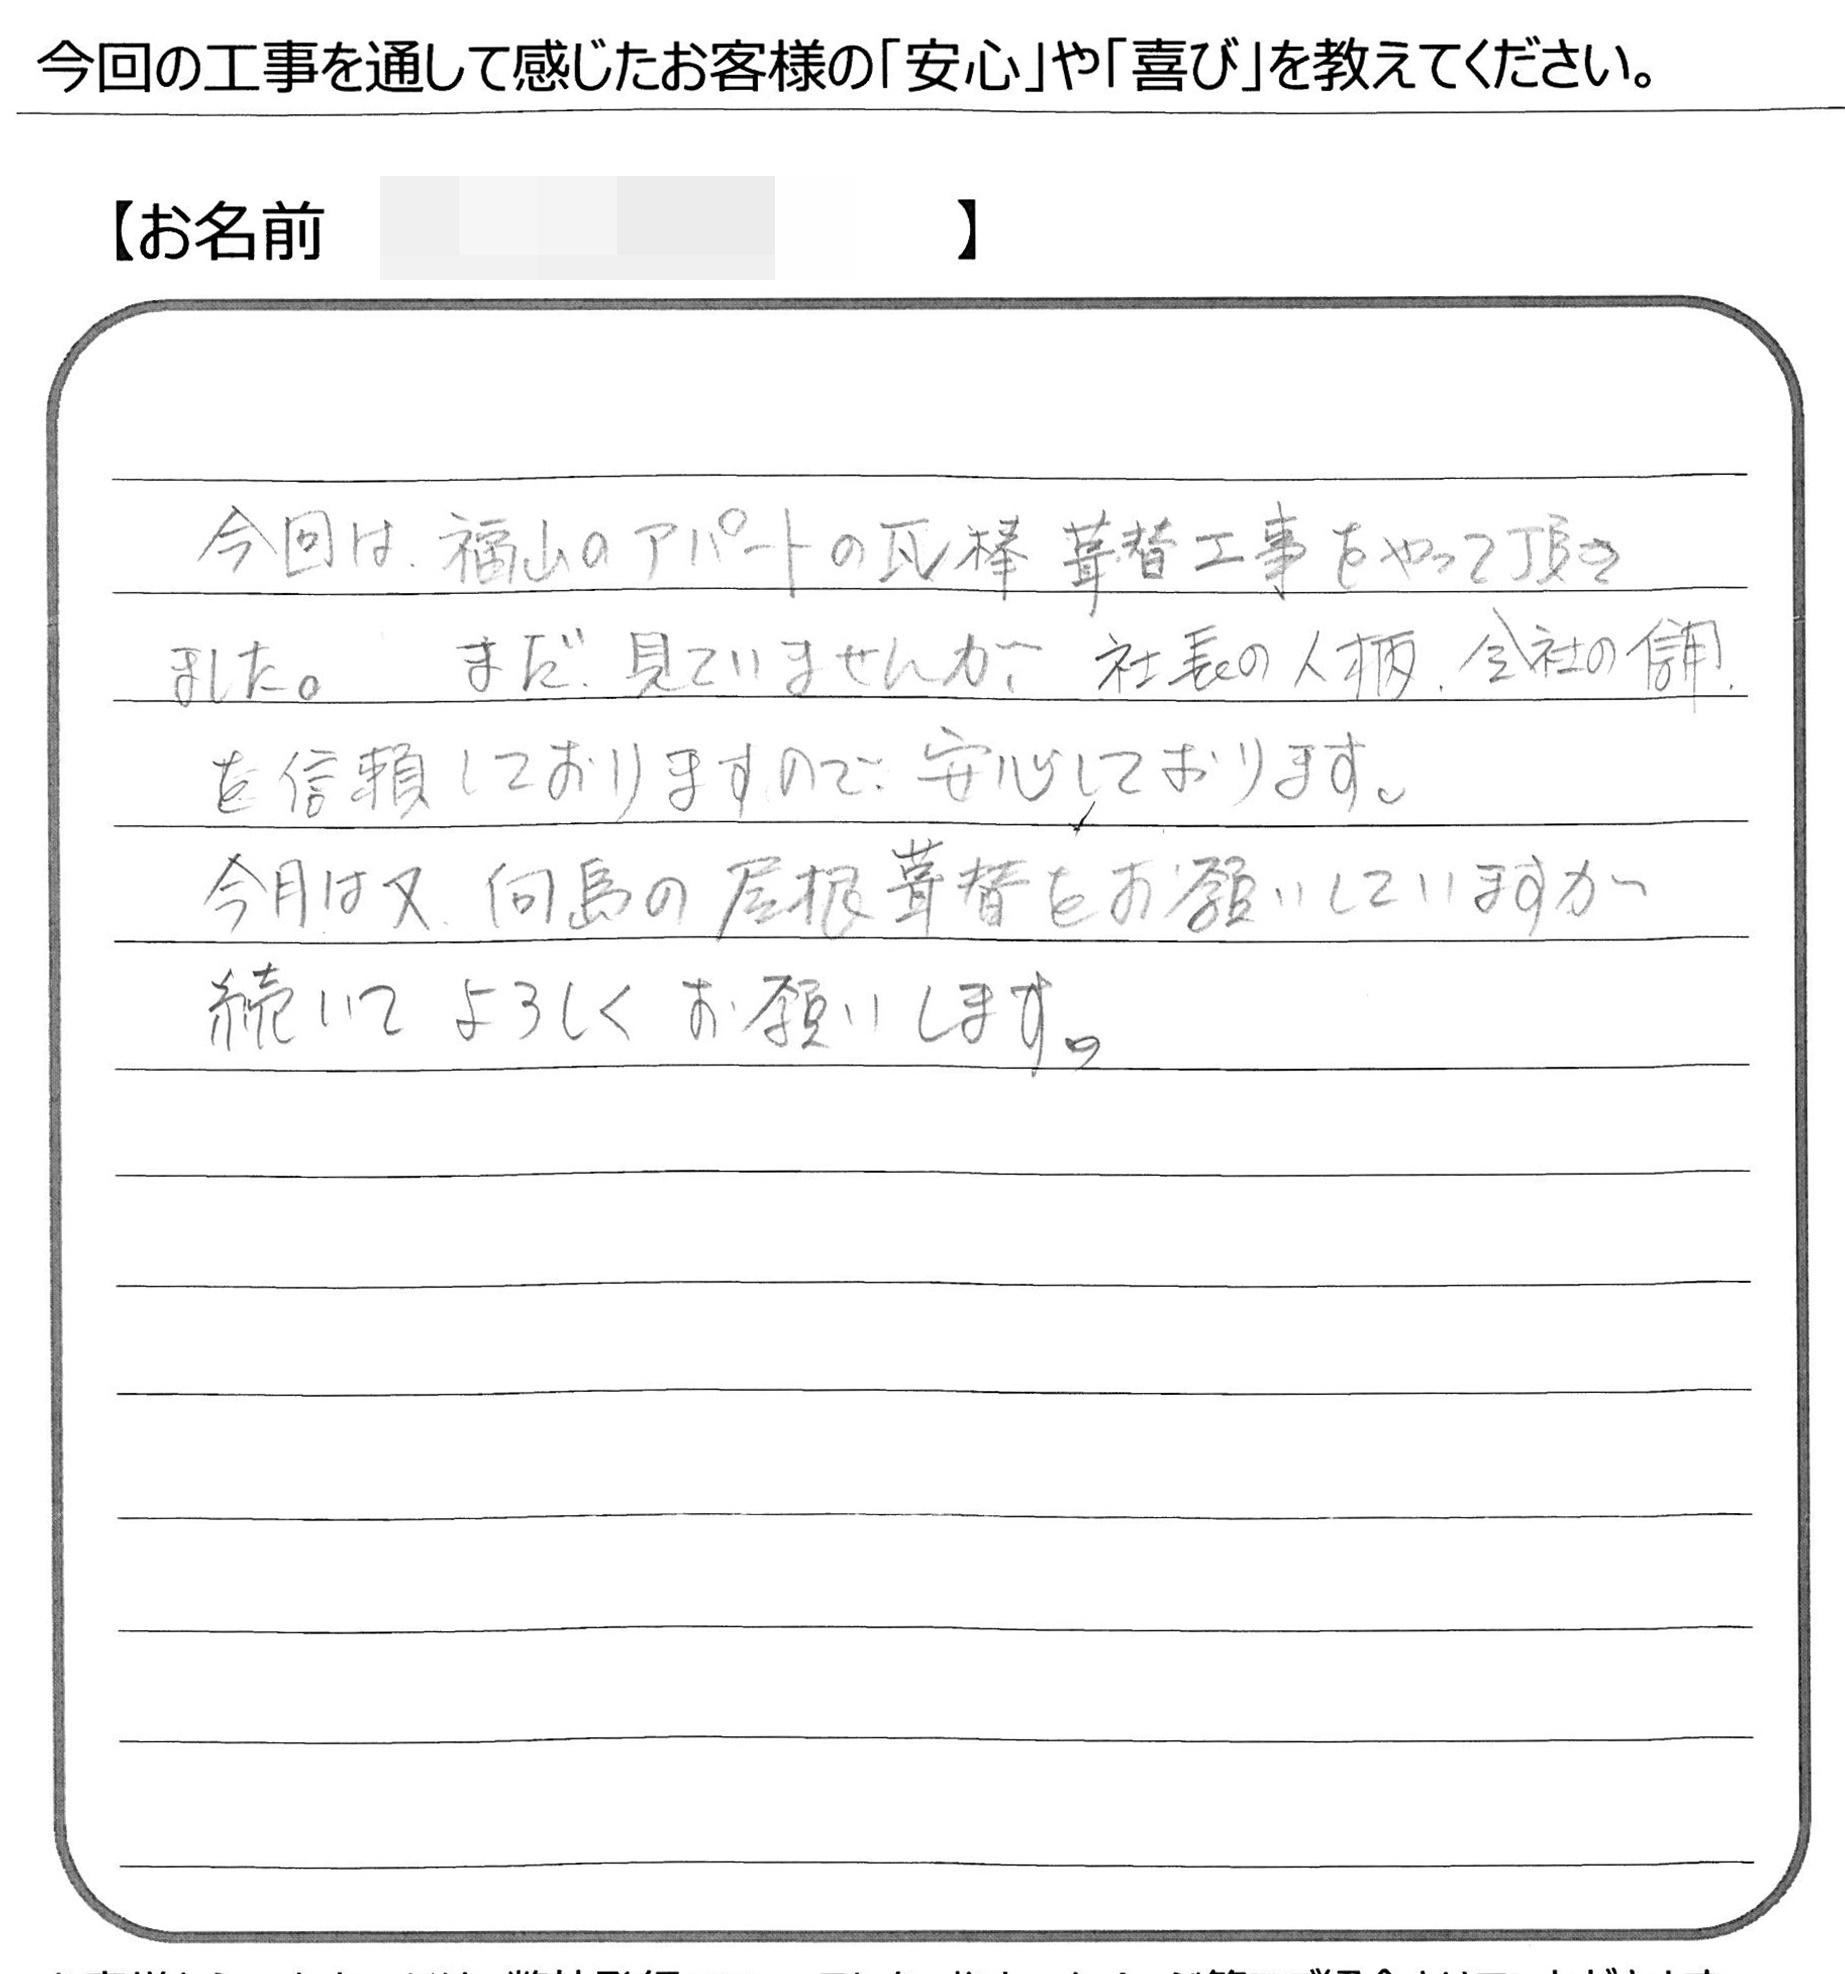 今回の工事を通して感じたお客様の「安心」や「喜び」を教えてください。
【お名前 】
今回は、福山のアパートの瓦棒葺替工事をやって頂き
ました。 まだ、見ていませんが 社長の人柄、会社の信用、
を信頼しておりますので、安心しております。
今月は又、向島の屋根葺替をお願いしていますが
続いて よろしく お願いします。